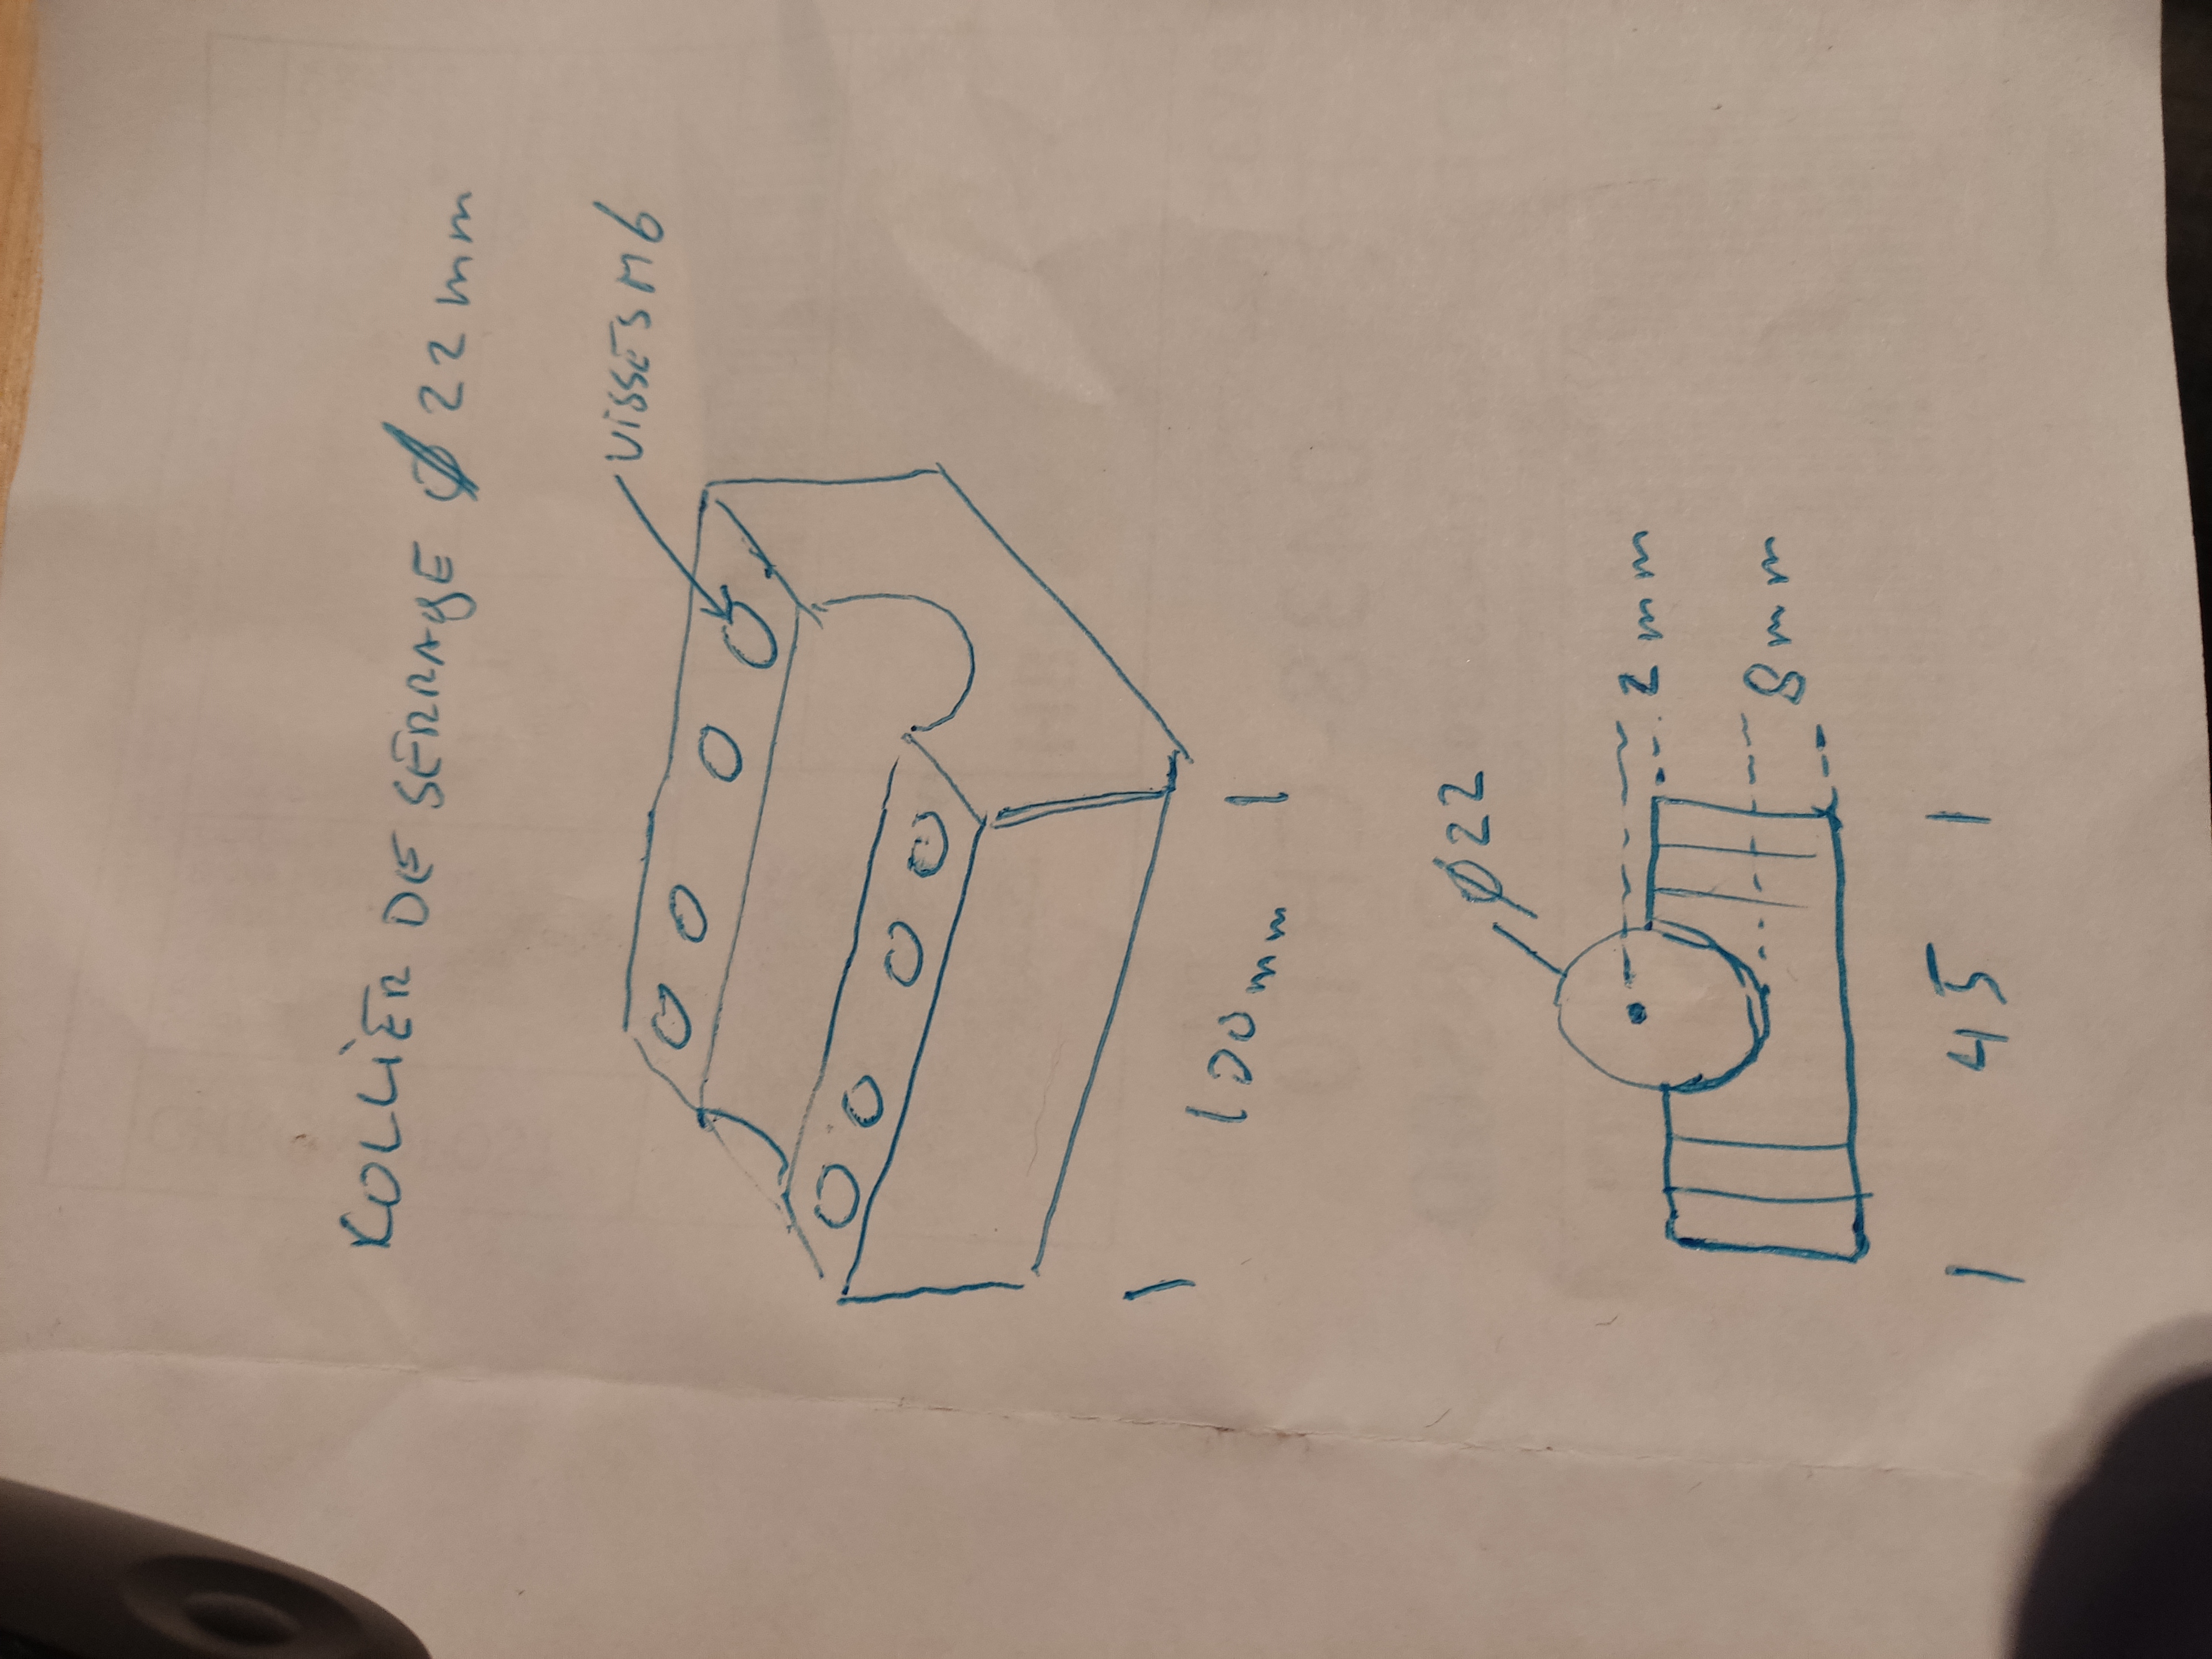 KOLLIÈR DE SERRAGE Ø 22 mm
VISSES M6
100 mm
Ø22
2 mm
8 mm
45